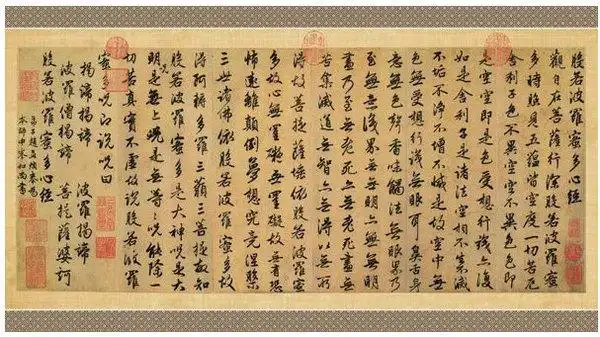 般若波羅蜜多心經
觀自在菩薩行深般若波羅蜜
多時照見五蘊皆空度一切苦厄
舍利子色不異空空不異色色即
是空空即是色受想行識亦復
如是舍利子是諸法空相不生不滅
不垢不淨不增不減是故空中無
色無受想行識無眼耳鼻舌身
意無色聲香味觸法無眼界乃
至無意識界無無明亦無無明
盡乃至無老死亦無老死盡無
苦集滅道無智亦無得以無所
得故菩提薩埵依般若波羅蜜
多故心無罣礙無罣礙故無有恐
怖遠離顛倒夢想究竟涅槃
三世諸佛依般若波羅蜜多故
得阿耨多羅三藐三菩提故知
般若波羅蜜多是大神咒是大
明咒是無上咒是無等等咒能除一
切苦真實不虛故說般若波羅
蜜多咒即說咒曰
揭諦揭諦 波羅揭諦
波羅僧揭諦 菩提薩婆訶
般若波羅蜜多心經
弟子趙孟頫奉爲
本師中峯和尚書